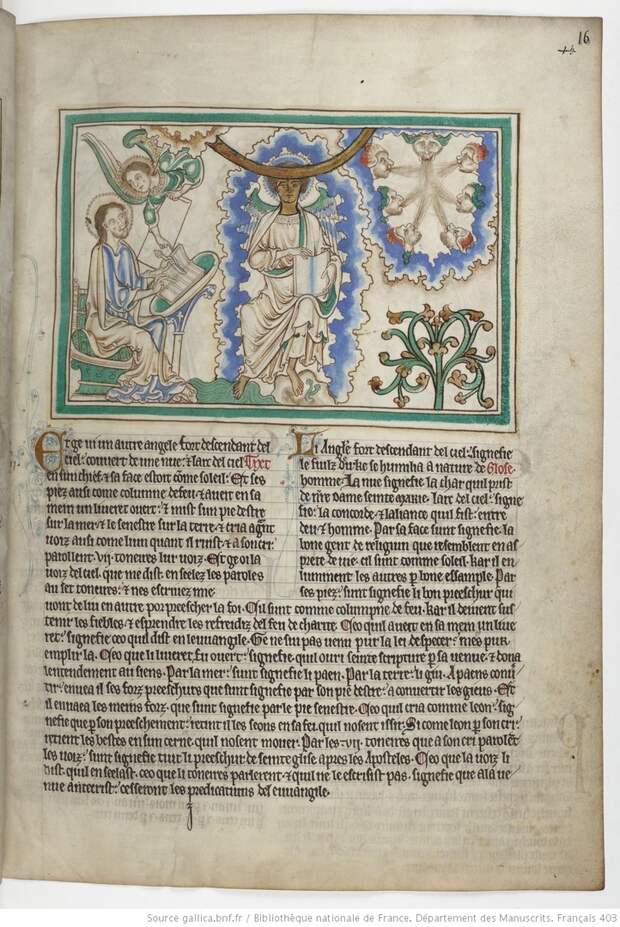 16
Et ge vi un autre angele fort descendant del
ciel: couvert de une nue: & larc del ciel Text
en sun chief: & sa face estoit come soleil: Et ses
piez ausi come columne de feu: & aveit en sa
mein un liveret overt: & mist sun pie destre
sur la mer: & le senestre sur la terre: & cria a grant
voiz ausi come liun quant il ruist: & a son cri:
parolent .vii. toneires lur voiz. Et ge oi la
voiz del ciel, que me dist: en seelez les paroles
au set toneires: & nes escrivez mie.
Li Angele fort descendant del ciel: signefie
le fiuz deu ke se humilia a nature de Glose
homme. La nue signefie la char quil prist
de nostre dame seinte marie. larc del ciel: signe
fie: la concorde, & laliance qui fist: entre
deu & homme. Par sa face sunt signefie: la
bone gent de religiun que resemblent en as
prete de vie. cil sunt come soleil. Kar il en
lumment les autres par bone essample. Par
ses piez: sunt signefie li bon preescheur qui
vont de liu en autre por preescher la foi. Cil sunt come columpne de feu. kar il deivent sus
tenir les fiebles, & esprendre les refreidiz del feu de charite. Ceo quil aveit en sa mein un live
ret: signefie ceo quil dist en levvangile. Ge ne sui pas venu pur la lei depecer: mes pur
emplir la. Ceo que li liveret fu overt: signefie, quil ovri seinte scripture par sa venue, & dona
lentendement au siens. Par la mer: sunt signefie li paen. Par la terre: li giu. A paens conver
tir: envea il ses forz preescheurs que sunt signefie par son pie destre: a convertir les gieus. Et
il enveea les meins forz, que sunt signefie par le pie senestre. Ceo quil cria come leon: sig
nefie que par son preeschement: retint il les seons en sa fei, quil nosent issir. Si come leon par son cri:
retient les bestes en sun cerne, quil nosent mover. Par les .vii. toneires que a son cri parolent
les voiz: sunt signefie tuit li preescheur de seinte glise apres les Aposteles. Ceo que la voiz li
dist, quil en seelast, ceo que li toneires parlerent, & quil ne le escrisist pas, signefie que a la ve
nue antecrist: cesseront les predicatiuns del euvangile.
Source gallica.bnf.fr / Bibliothèque nationale de France. Département des Manuscrits. Français 403